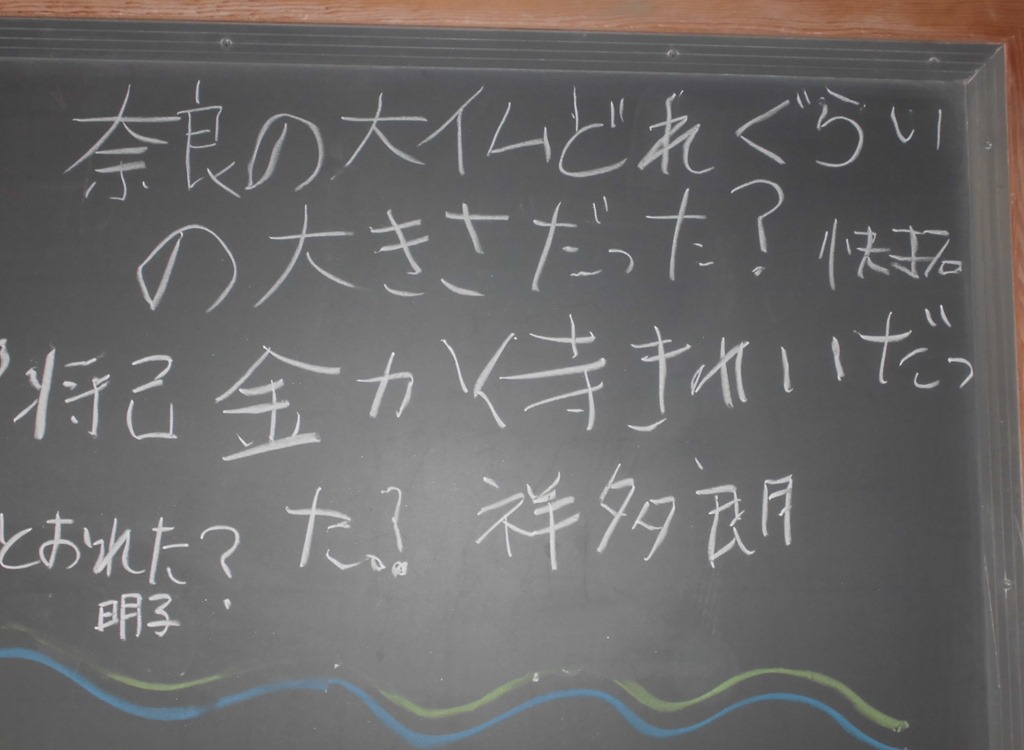 奈良の大仏どれぐらい
の大きさだった?
将己 金かく寺きれいだっ
た? 祥多朗
とおれた?
明子